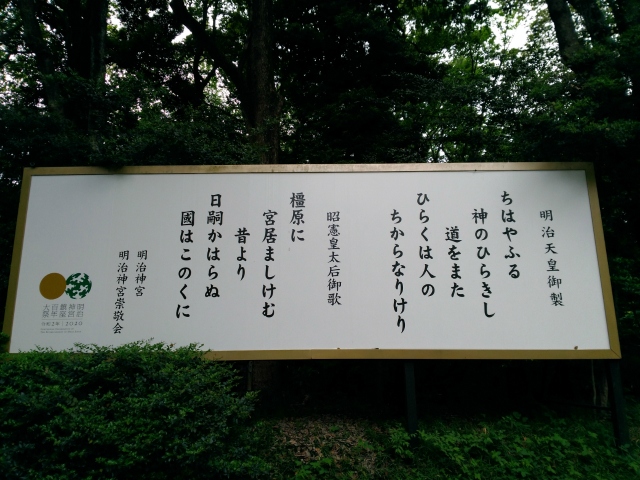 明治天皇御製
ちはやふる
神のひらきし
道をまた
ひらくは人の
ちからなりけり
昭憲皇太后御歌
橿原に
宮居ましけむ
昔より
日嗣かはらぬ
國はこのくに
明治神宮
明治神宮崇敬会
明治神宮鎮座百年大祭
令和2年・2020